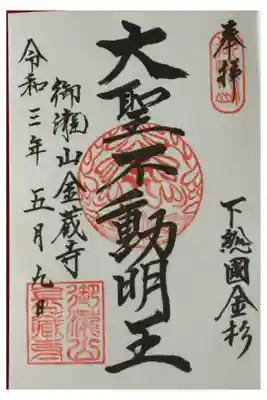 奉拝
下総國金杉
大聖不動明王
御瀧山金蔵寺
令和三年五月九日
御瀧山
金蔵寺